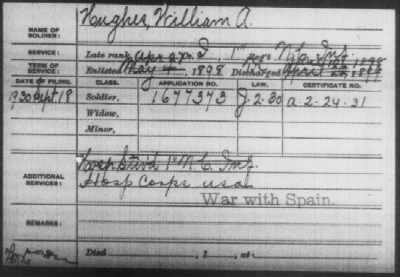 NAME OF SOLDIER: Hughes, William A.
SERVICE: Late rank, Co. I 1" Reg't N.C. Inf.
TERM OF SERVICE: Enlisted May 1898 Discharged April
DATE OF FILING. CLASS. APPLICATION NO. LAW. CERTIFICATE NO.
1930 Sept 18 Soldier, 1677373 J-2-30 a-2-24-31
Widow,
Minor,
1" N.C. Inf.
ADDITIONAL SERVICES: Hosp Corps usa
War with Spain.
REMARKS:
Died , 1 , at